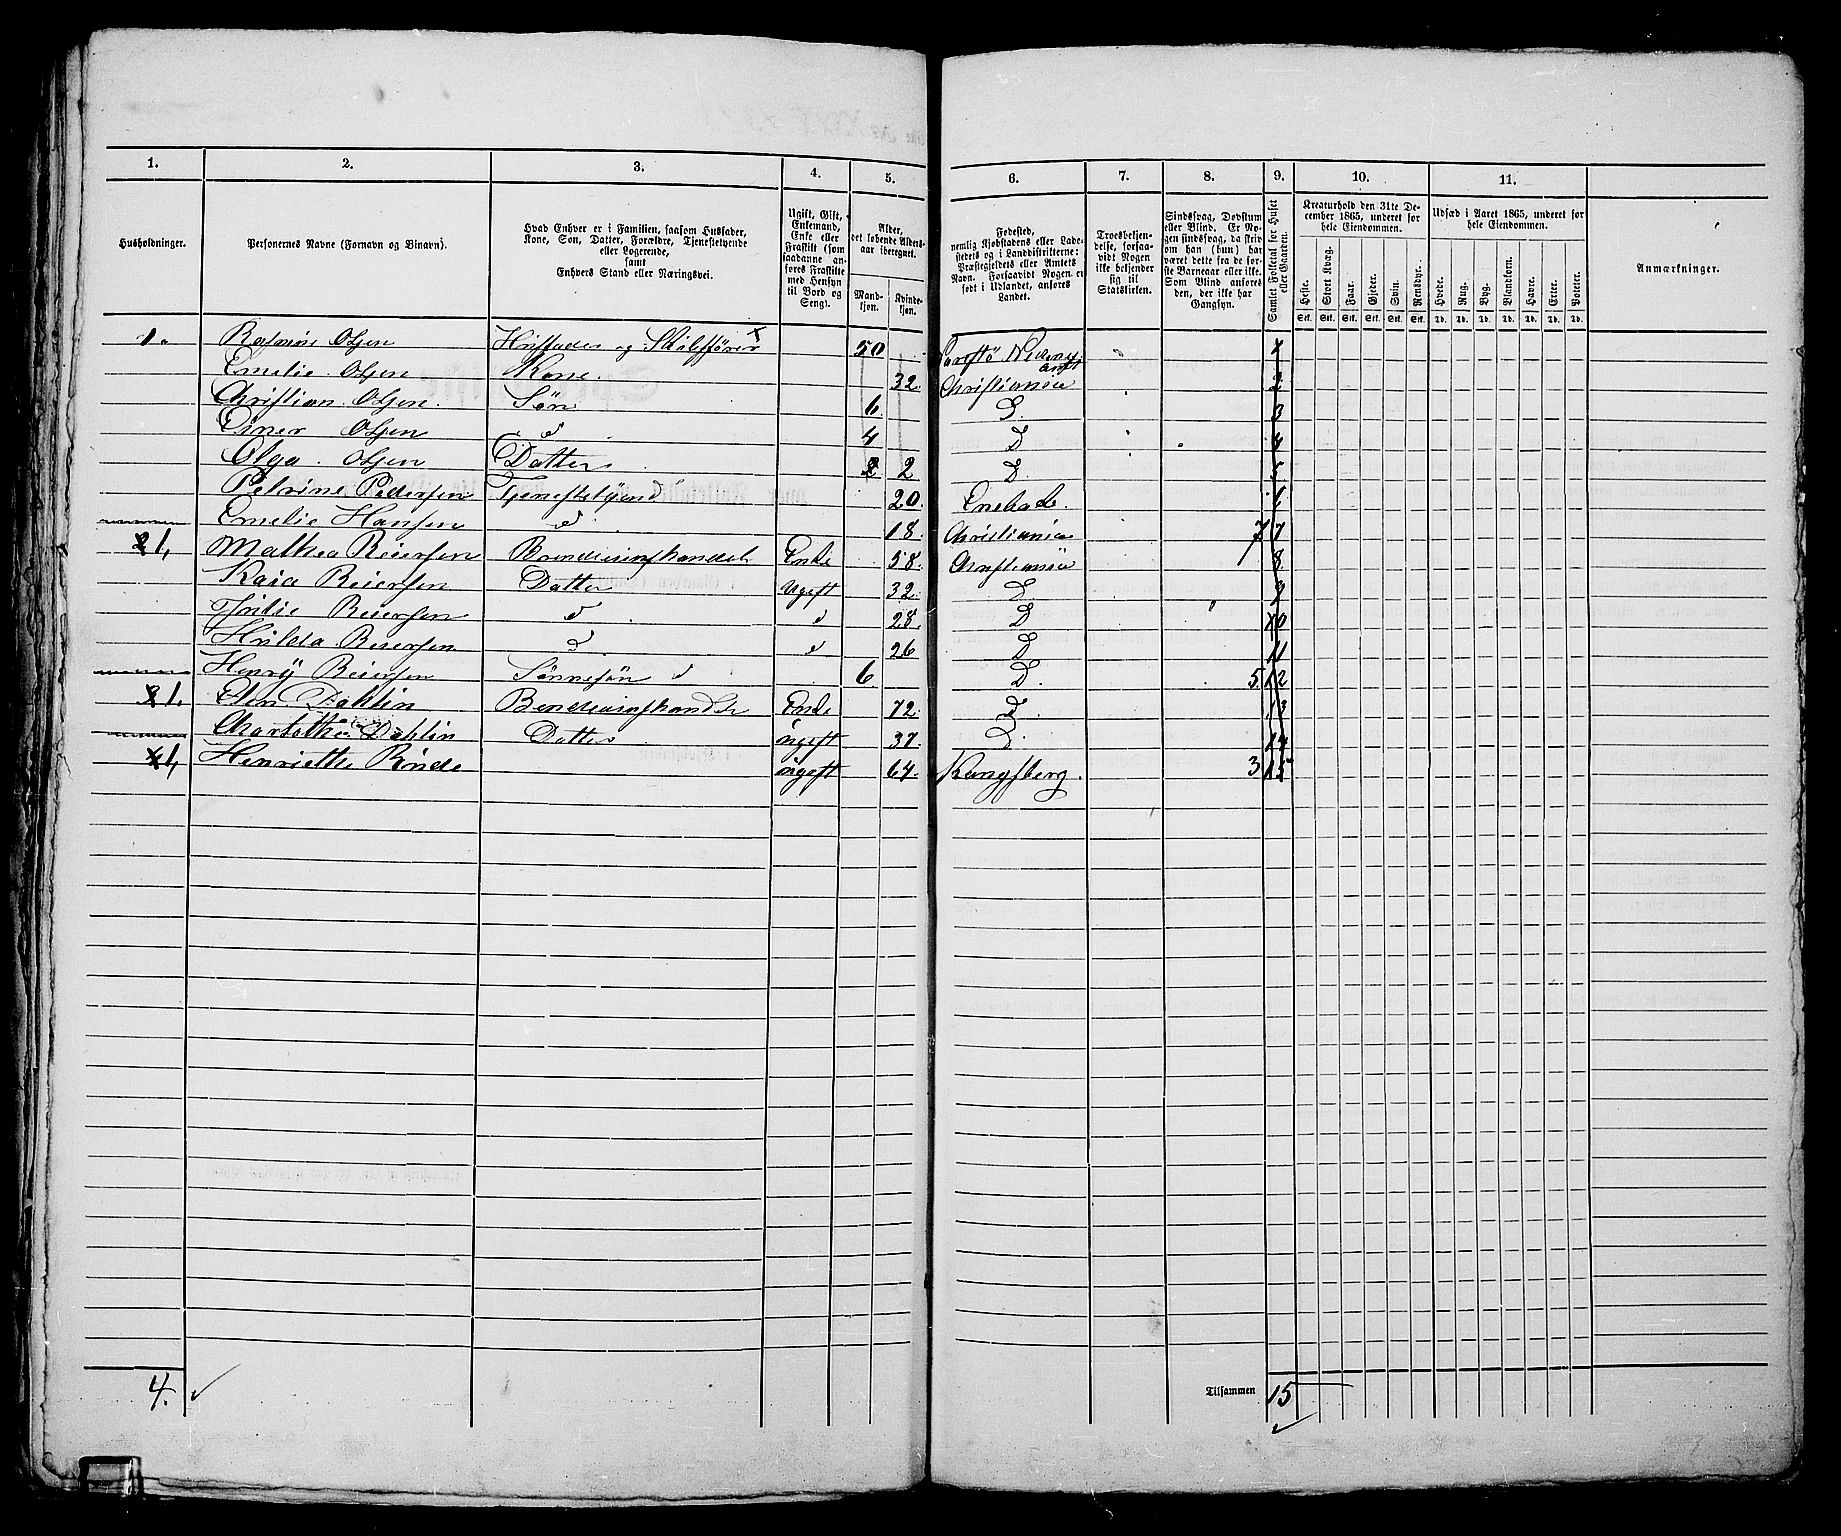 1. 2. 3. 4. 5. 6. 7. 8. 9. 10. 11.
Husholdninger.
Personernes Navne (Fornavn og Binavn).
Hvad Enhver er i Familien, saasom Husfader,
Kone, Søn, Datter, Forældre, Tjenestetyende
eller Logerende,
samt
Enhvers Stand eller Næringsvei.
Ugift, Gift,
Enkemand,
Enke eller
Fraskilt (som
saadanne an-
føres Fraskilte
med Hensyn
til Bord og
Seng).
Alder,
det løbende Alders-
aar iberegnet.
Mand-
kjøn.
Kvinde-
kjøn.
Fødested,
nemlig Kjøbstadens eller Lade-
stedets og i Landdistrikterne:
Præstegjeldets eller Amtets
Navn. Forsaavidt Nogen er
født i Udlandet, anføres
Landet.
Troesbekjen-
delse, forsaa-
vidt Nogen
ikke bekjender
sig til
Statskirken.
Sindssvag, Døvstum
eller Blind. Er No-
gen sindssvag, da skriv
om han (hun) har
været dette fra de før-
ste Barneaar eller ikke.
Som Blind anføres
den, der ikke har
Gangsyn.
Samlet Folketal for Huset
eller Gaarden.
Kreaturhold den 31te De-
cember 1865, underet for
hele Eiendommen.
Heste. Stort Kvæg. Faar. Gjeder. Svin. Rensdyr.
Stk. Stk. Stk. Stk. Stk. Stk.
Udsæd i Aaret 1865, underet for
hele Eiendommen.
Hvede. Rug. Byg. Blandkorn. Havre. Erter. Poteter.
Td. Td. Td. Td. Td. Td. Td.
Anmærkninger.
1. Olsen Husfader og 50 1
Emelie Olsen Kone. 32. Christiania 2
Christian Olsen. Søn 6 D. 3
Einer Olsen d 4 D 4
Olga Olsen Datter 2 2 D. 5
Petrine Pedersen Tjenestetyend 20.
Emelie Hansen d 18. Christiania 7 7
2 1, Mathea Reiersen Enke 58. Christiania 8
Kaia Reiersen Datter Ugift 32. D 9
Reiersen d d 28. D 10
Hilda Reiersen d d 26 D 11
Henry Reiersen Sønnesøn d 6 D. 5. 12
3 1. Elen Dahlin Enke 72. D. 13
Dahlin Datter ugift 37. D. 14
4 1, Henriette ugift 64. Kongsberg. 3 15
4.
Tilsammen 15